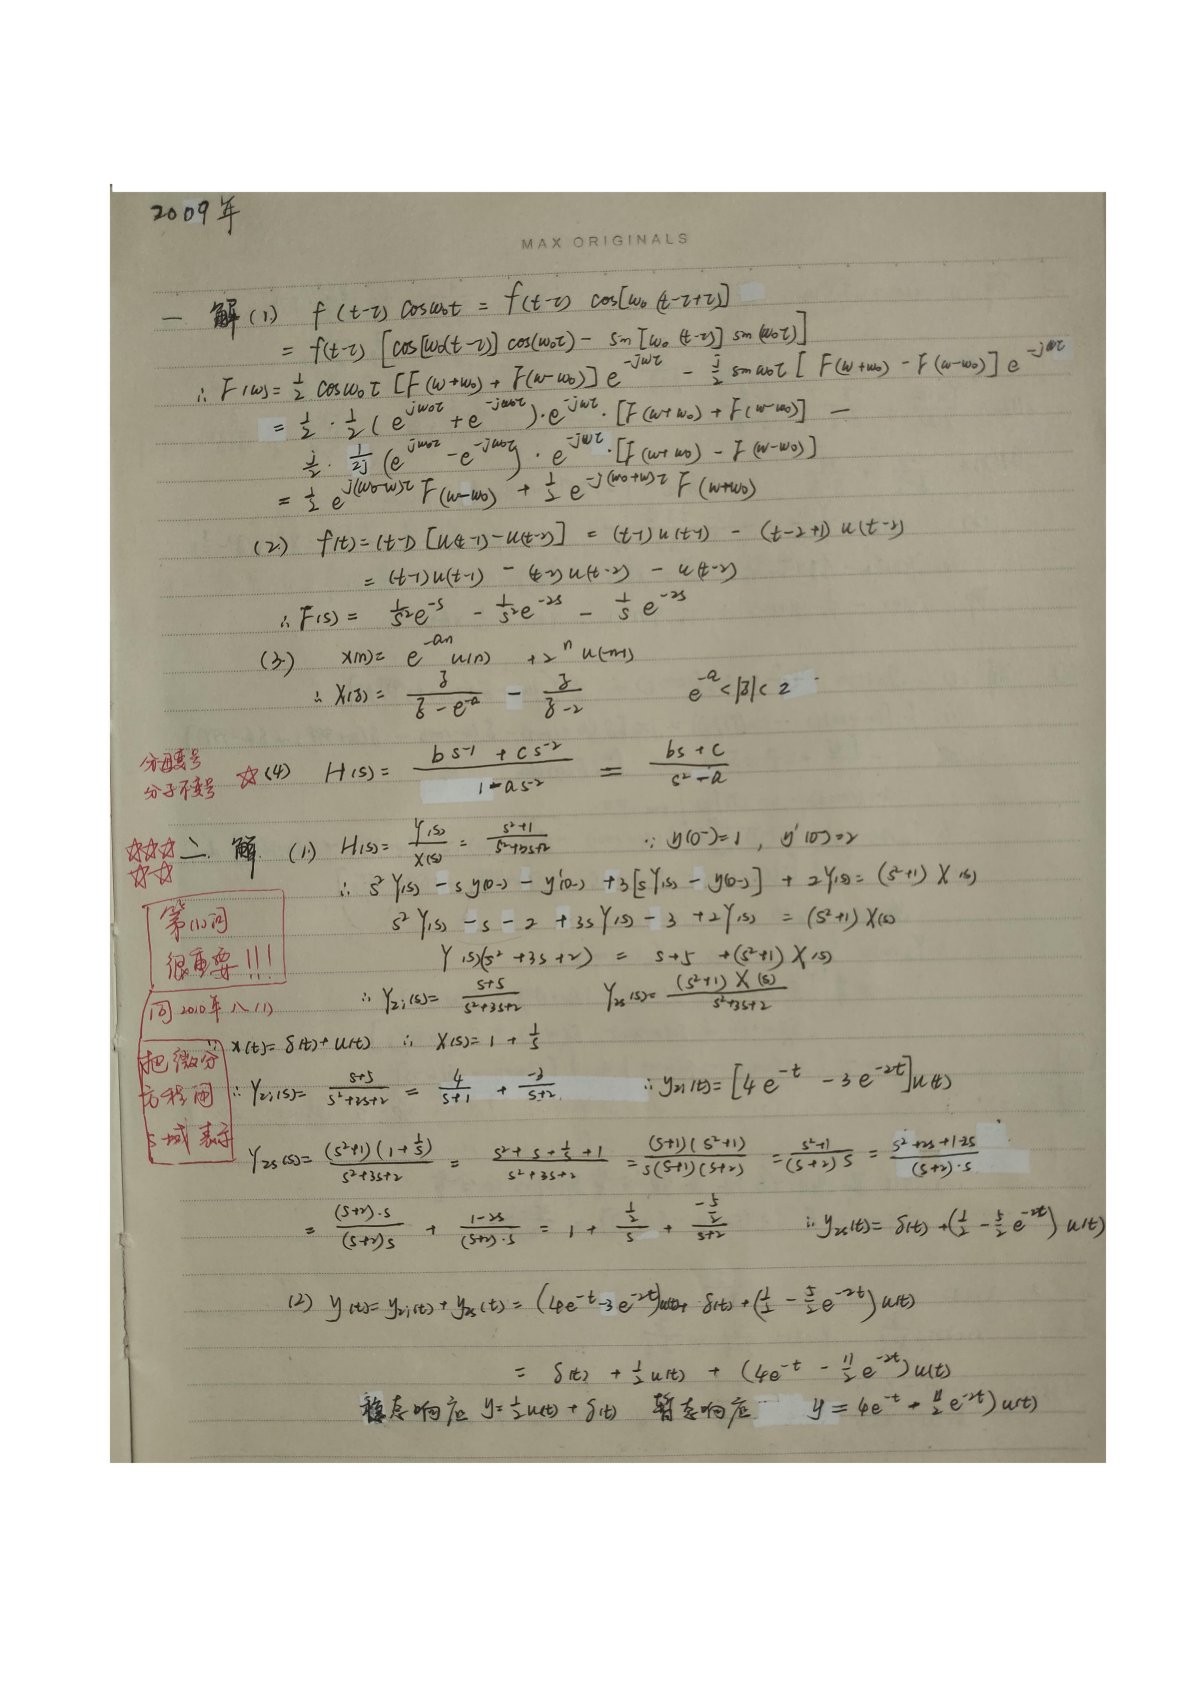 2009年
MAX ORIGINALS
一 解(1) f(t-τ) cosω₀t = f(t-τ) cos[ω₀(t-τ+τ)]
= f(t-τ) [cos[ω₀(t-τ)] cos(ω₀τ) - sin[ω₀(t-τ)] sin(ω₀τ)]
∴ F(ω)= 1/2 cosω₀τ [F(ω+ω₀) + F(ω-ω₀)] e^{-jωτ} - j/2 sinω₀τ [F(ω+ω₀) - F(ω-ω₀)] e^{-jωτ}
= 1/2 · 1/2 (e^{jω₀τ} + e^{-jω₀τ})·e^{-jωτ}·[F(ω+ω₀) + F(ω-ω₀)] -
j/2 · 1/2j (e^{jω₀τ} - e^{-jω₀τ})·e^{-jωτ}·[F(ω+ω₀) - F(ω-ω₀)]
= 1/2 e^{j(ω₀-ω)τ} F(ω-ω₀) + 1/2 e^{-j(ω₀+ω)τ} F(ω+ω₀)
(2) f(t)=(t-1)[u(t-1)-u(t-2)] = (t-1)u(t-1) - (t-2+1)u(t-2)
= (t-1)u(t-1) - (t-2)u(t-2) - u(t-2)
∴ F(s)= 1/s² e^{-s} - 1/s² e^{-2s} - 1/s e^{-2s}
(3) x(n)= e^{-an}u(n) + 2^n u(-n-1)
∴ X(z)= z/(z-e^{-a}) - z/(z-2) e^{-a}<|z|<2
分母变号
分子不变号
☆(4) H(s)= (bs^{-1}+cs^{-2})/(1-as^{-2}) = (bs+c)/(s²-a)
☆☆☆☆☆ 二. 解 (1) H(s)= Y(s)/X(s) = (s²+1)/(s²+3s+2) ∵ y(0-)=1, y'(0-)=2
∴ s²Y(s) - sy(0-) - y'(0-) + 3[sY(s) - y(0-)] + 2Y(s) = (s²+1)X(s)
第(1)问
很重要!!!
s²Y(s) - s - 2 + 3sY(s) - 3 + 2Y(s) = (s²+1)X(s)
Y(s)(s²+3s+2) = s+5 + (s²+1)X(s)
∴ Yzi(s)= (s+5)/(s²+3s+2) Yzs(s)= (s²+1)X(s)/(s²+3s+2)
同2010年八(1)
∵ x(t)=δ(t)+u(t) ∴ X(s)= 1 + 1/s
把微分
方程用
s域表示
∴ Yzi(s)= (s+5)/(s²+3s+2) = 4/(s+1) + -3/(s+2) ∴ yzi(t)=[4e^{-t} - 3e^{-2t}]u(t)
Yzs(s)= (s²+1)(1+1/s)/(s²+3s+2) = (s²+s+1/s+1)/(s²+3s+2) = (s+1)(s²+1)/(s(s+1)(s+2)) = (s²+1)/((s+2)s) = (s²+2s+1-2s)/((s+2)·s)
= (s+2)·s/((s+2)s) + (1-2s)/((s+2)·s) = 1 + (1/2)/s + (-5/2)/(s+2) ∴ yzs(t)= δ(t)+(1/2 - 5/2 e^{-2t})u(t)
(2) y(t)= yzi(t)+yzs(t) = (4e^{-t}-3e^{-2t})u(t)+ δ(t)+(1/2 - 5/2 e^{-2t})u(t)
= δ(t) + 1/2 u(t) + (4e^{-t} - 11/2 e^{-2t})u(t)
稳态响应 y=1/2 u(t)+δ(t) 暂态响应 y=4e^{-t} + 11/2 e^{-2t})u(t)